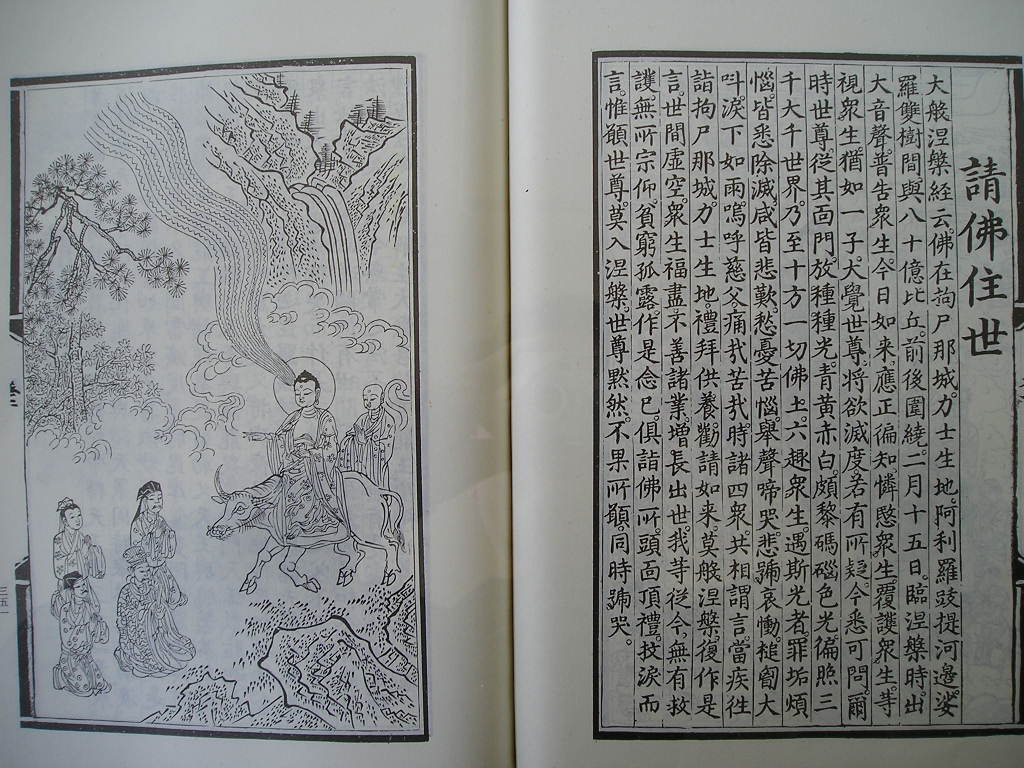 請佛住世
大般涅槃經云。佛在拘尸那城。力士生地。阿利羅跋提河邊。娑
羅雙樹間。與八十億比丘。前後圍繞。二月十五日。臨涅槃時。出
大音聲。普告眾生。今日如來應正徧知。憐愍眾生。覆護眾生。等
視眾生。猶如一子。大覺世尊。將欲滅度。若有所疑。今悉可問。爾
時世尊。從其面門。放種種光。青黃赤白。頗黎碼碯色光。徧照三
千大千世界。乃至十方一切佛土。六趣眾生。遇斯光者。罪垢煩
惱。皆悉除滅。咸皆悲歎。愁憂苦惱。舉聲啼哭。悲號哀慟。槌𦚾大
叫。淚下如雨。嗚呼慈父。痛哉苦哉。時諸四眾。共相謂言。當疾往
詣拘尸那城。力士生地。禮拜供養。勸請如來。莫般涅槃。復作是
言。世間虛空。眾生福盡。不善諸業。增長出世。我等從今。無有救
護。無所宗仰。貧窮孤露。作是念已。俱詣佛所。頭面頂禮。抆淚而
言。惟願世尊。莫入涅槃。世尊黙然。不果所願。同時號哭。
卷二
三五